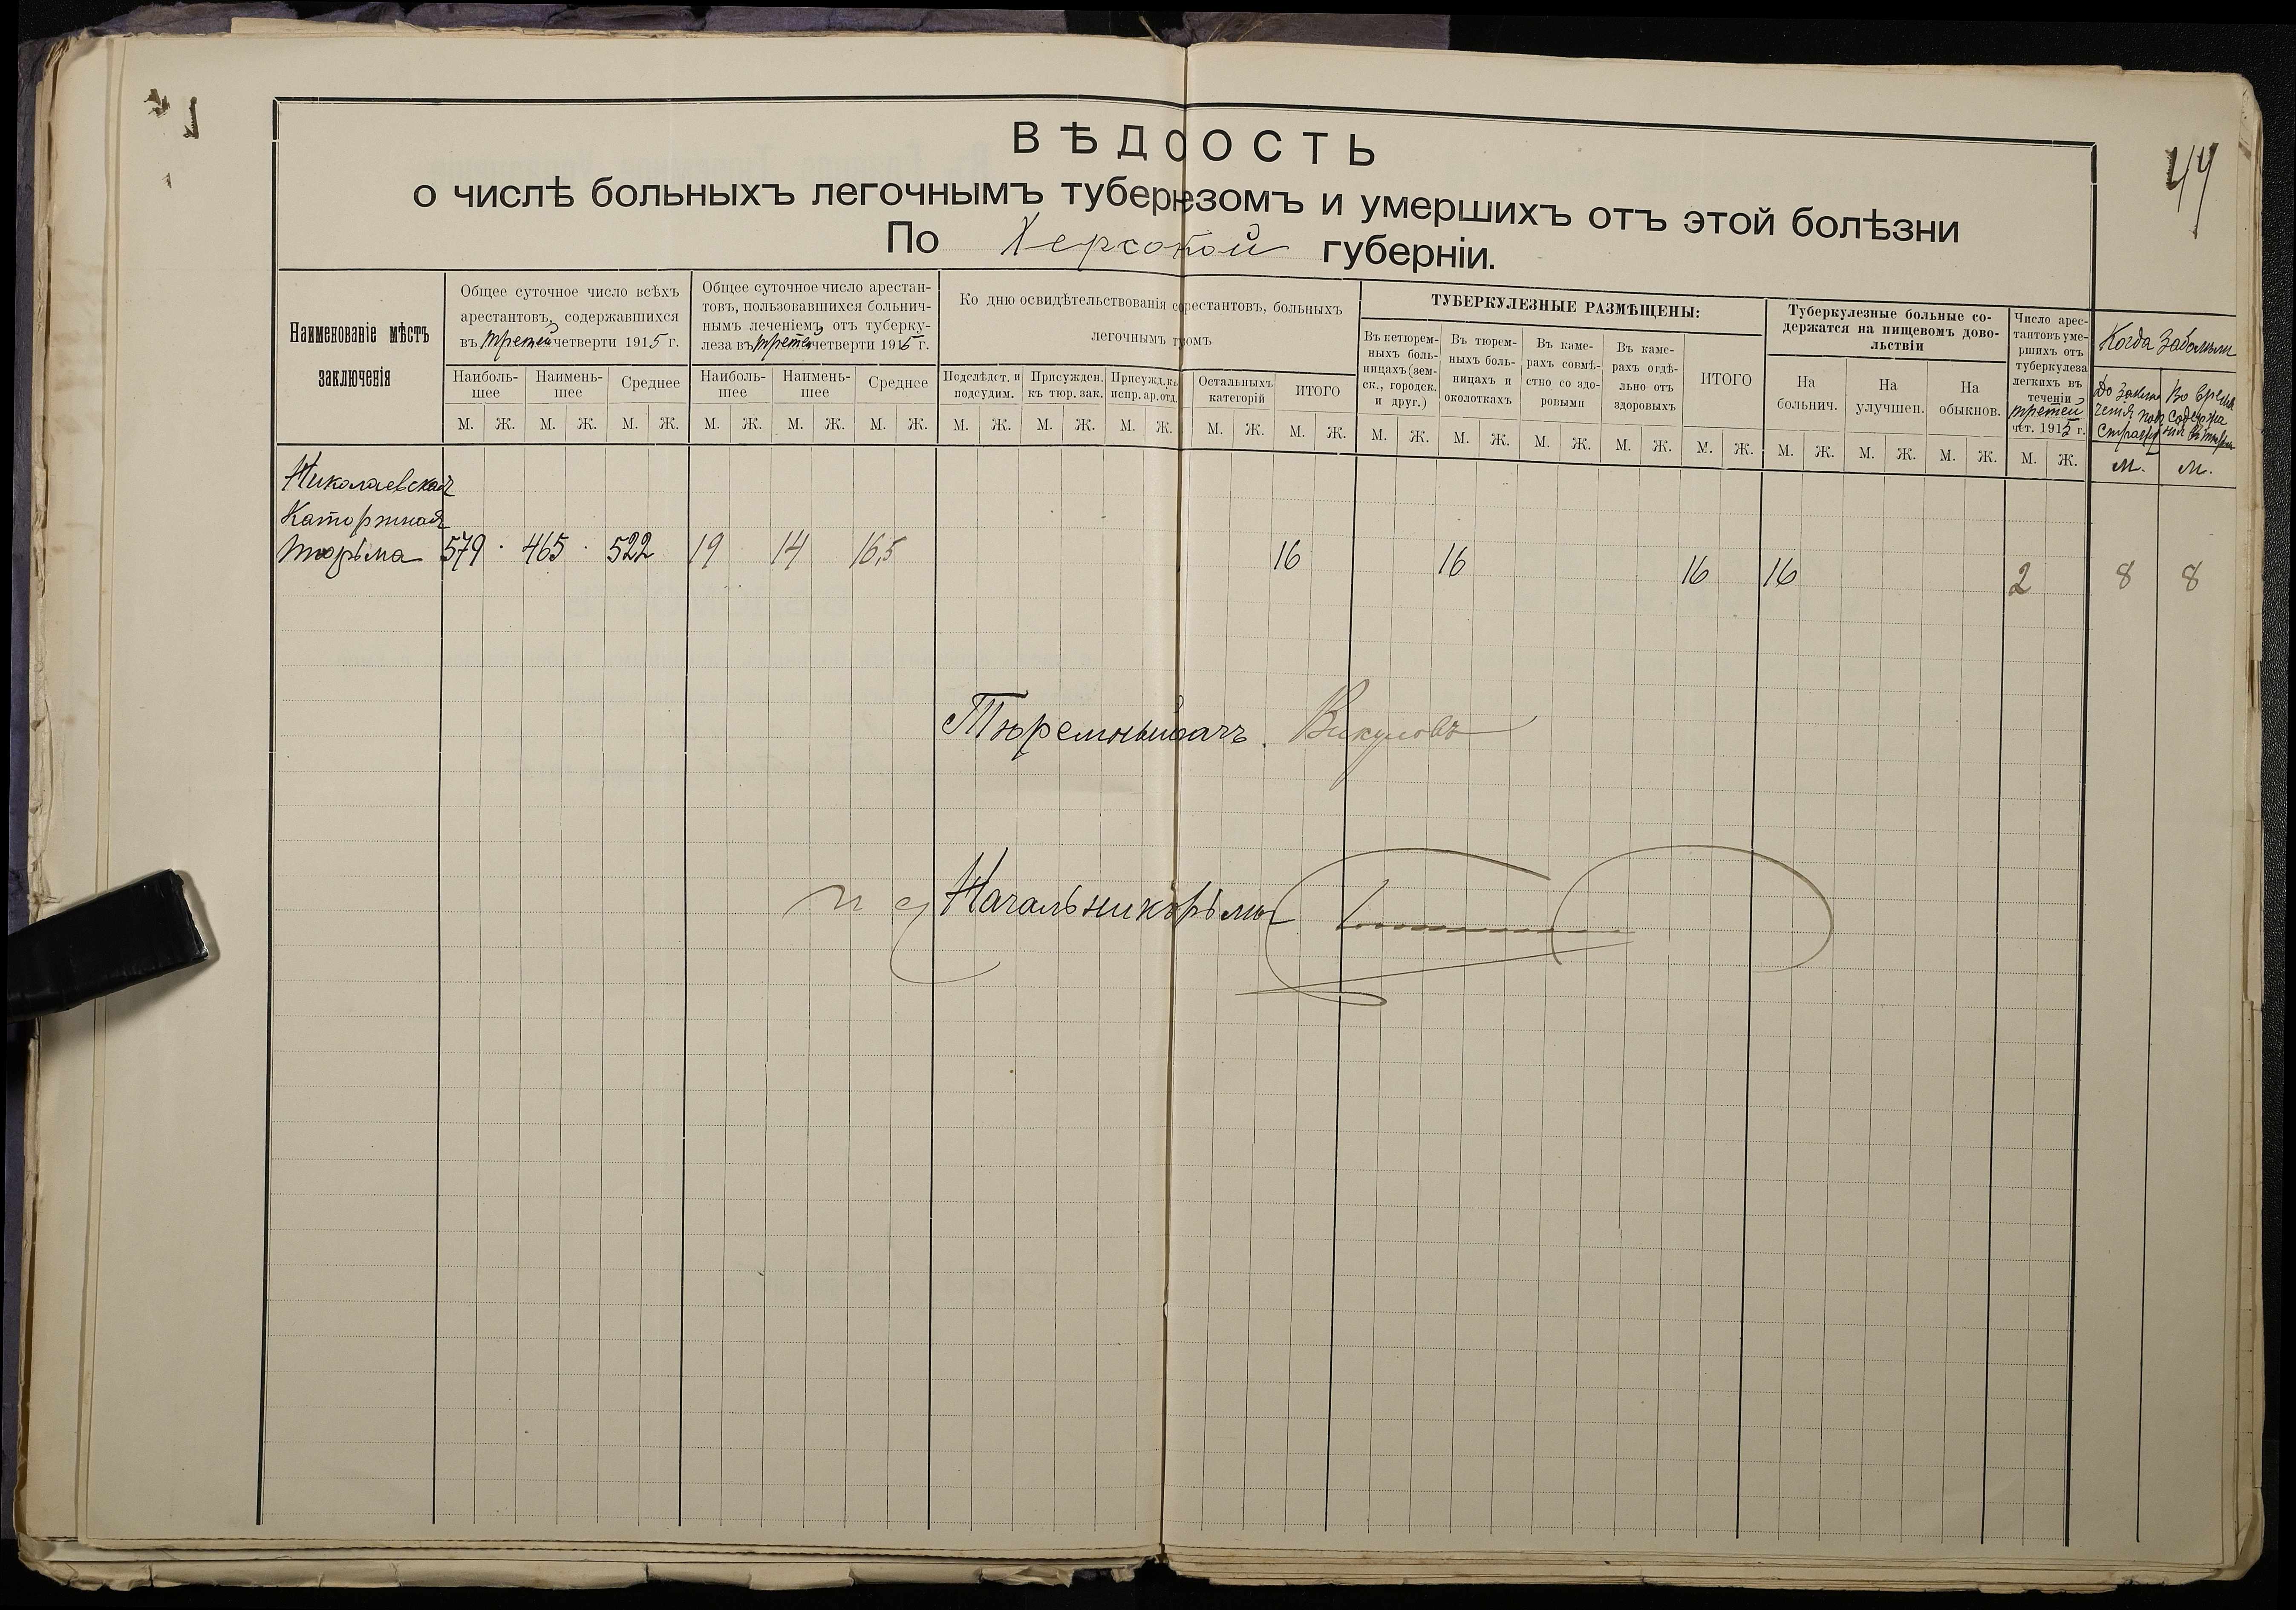 44
ВѢДООСТЬ
о числѣ больныхъ легочнымъ туберкзомъ и умершихъ отъ этой болѣзни
По Херсокой губерніи.
Наименованіе мѣстъ
заключенія
Общее суточное число всѣхъ
арестантовъ, содержавшихся
въ третей четверти 1915 г.
Наиболь-
шее
Наимень-
шее
Среднее
М. Ж. М. Ж. М. Ж.
Общее суточное число арестан-
товъ, пользовавшихся больнич-
нымъ леченіемъ отъ туберку-
леза въ третей четверти 1915 г.
Наиболь-
шее
Наимень-
шее
Среднее
М. Ж. М. Ж. М. Ж.
Ко дню освидѣтельствованія арестантовъ, больныхъ
легочнымъ
Подслѣдст. и
подсудим.
Присужден.
къ тюр. зак.
Присужд. къ
испр. ар. отд.
Остальныхъ
категорій
ИТОГО
М. Ж. М. Ж. М. Ж. М. Ж. М. Ж.
ТУБЕРКУЛЕЗНЫЕ РАЗМѢЩЕНЫ:
Въ нетюрем-
ныхъ боль-
ницахъ (зем-
ск., городск.
и друг.)
Въ тюрем-
ныхъ боль-
ницахъ и
околоткахъ
Въ каме-
рахъ совмѣ-
стно со здо-
ровыми
Въ каме-
рахъ отдѣ-
льно отъ
здоровыхъ
ИТОГО
М. Ж. М. Ж. М. Ж. М. Ж. М. Ж.
Туберкулезные больные со-
держатся на пищевомъ дово-
льствіи
На
больнич.
На
улучшен.
На
обыкнов.
М. Ж. М. Ж. М. Ж.
Число арес-
тантовъ уме-
ршихъ отъ
туберкулеза
легкихъ въ
теченіи
третей
чет. 1915 г.
М. Ж.
Когда заболѣли
До заклю
ченія под
стражу
Во время
содержа
нія въ тюрьмѣ
М. М.
Николаевская
Каторжная
тюрьма 579 465 522 19 14 16,5 16 16 16 16 2 8 8
Тюремный врачъ. Викуловъ
И д Начальникъ тюрьмы